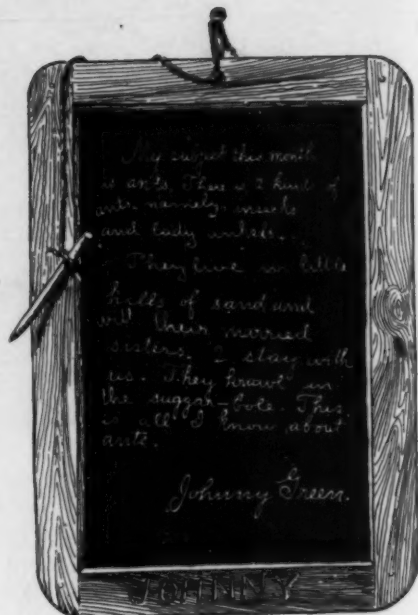 My subject this month
is ants. There is 2 kind of
ants namely insects
and lady unkels.
They live in little
hills of sand and
with their married
sisters. 2 stay with
us. They krawl in
the suggar-bole. This
is all I know about
ants.
Johnny Green.
JOHNNY